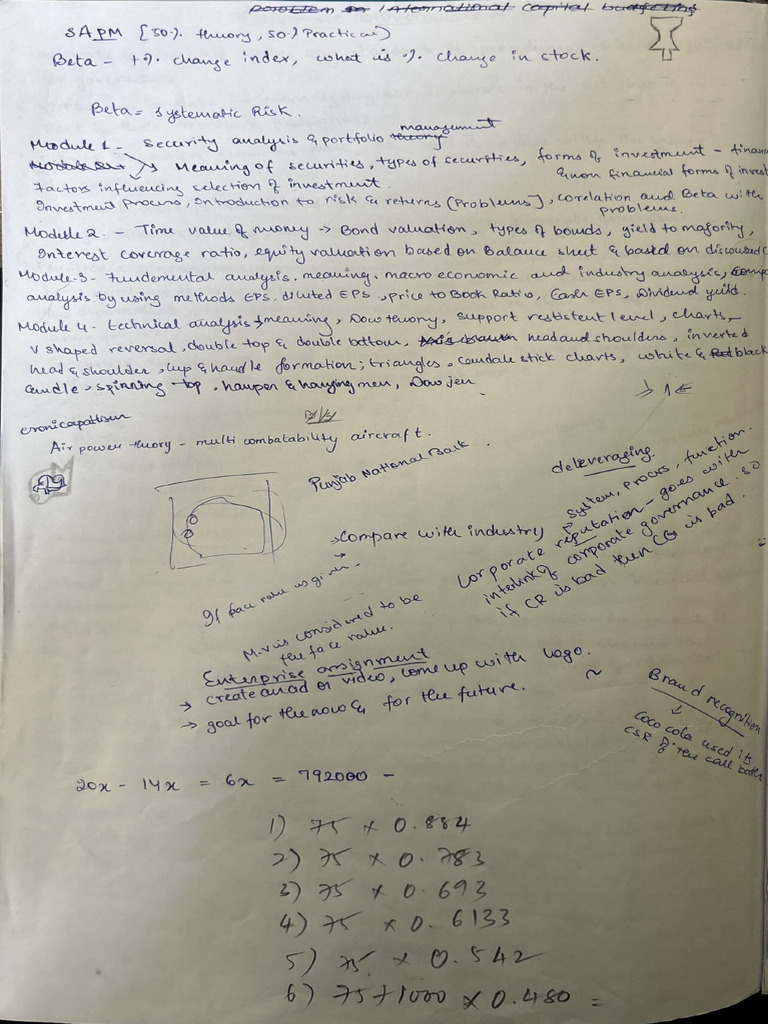 Problem on International capital budgeting
SAPM [50% theory, 50% Practical]
Beta - 1% change index, what is % change in stock.
Beta = Systematic Risk.
Module 1 - Security analysis & portfolio theory management
Module 2 - Meaning of securities, types of securities, forms of investment - financ
& non financial forms of invest
Factors influencing selection of investment.
Investment process, introduction to risk & returns (Problems), corelation and Beta with
problems.
Module 2 - Time value of money → Bond valuation, types of bounds, yield to majority,
Interest coverage ratio, equity valuation based on Balance sheet & based on discouned
Module-3 - Fundemental analysis. meaning. macro economic and industry analysis, comp
analysis by using methods EPS, diluted EPS, Price to Book Ratio, Cash EPS, Dividend yield.
Module 4 - technical analysis, meaning, Dow theory, support restistent level, charts,
V shaped reversal, double top & double bottom, head and shoulders, inverted
head & shoulder, cup & handle formation; triangles, candale stick charts, white & Red black
candle, spinning top, hamper & hanging men, Dow jen
Air power theory - multi combatability aircraft.
Punjab National Bank.
deleveraging
→ Compare with industry
System, process, function.
Corporate reputation - goes with
interlink of corporate governance. so
if CR is bad then CG is bad.
If face value is given -
M.v is considered to be
the face value.
Enterprise assignment
→ create an ad or video, come up with logo.
→ goal for the now & for the future.
Brand recognition
↓
Coco cola used its
CSR of the call booth
20x - 14x = 6x = 792000 -
1) 75 x 0.884
2) 75 x 0.783
3) 75 x 0.693
4) 75 x 0.6133
5) 75 x 0.542
6) 75+1000 x 0.480 =